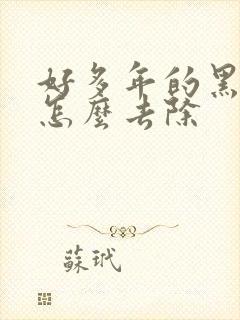 好多年的黑
怎麼去除
蘇玳